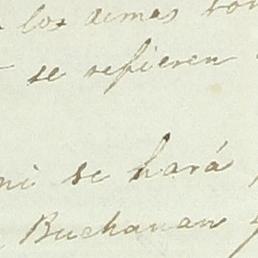 los demas
se refieren
ni se hará
Buchanan